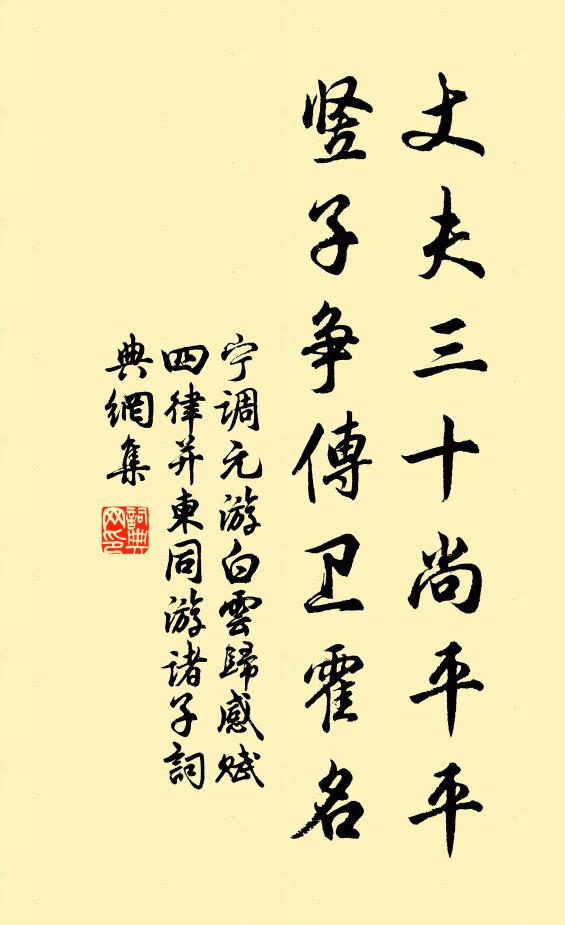 丈夫三十尚平平
竖子争傳卫霍名
宁调元游白雲歸感赋
四律并東同游诸子詞
典網集
詞典网印